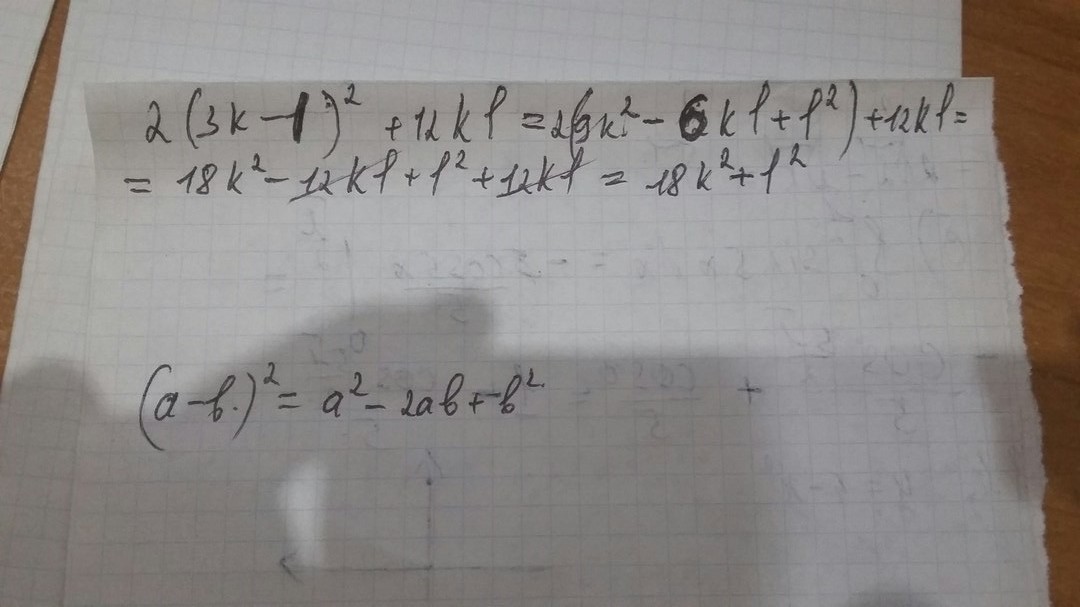 2(3k-l)² + 12kl = 2(9k² - 6kl + l²) + 12kl =
= 18k² - 12kl + l² + 12kl = 18k² + l²
(a-b)² = a² - 2ab + b²